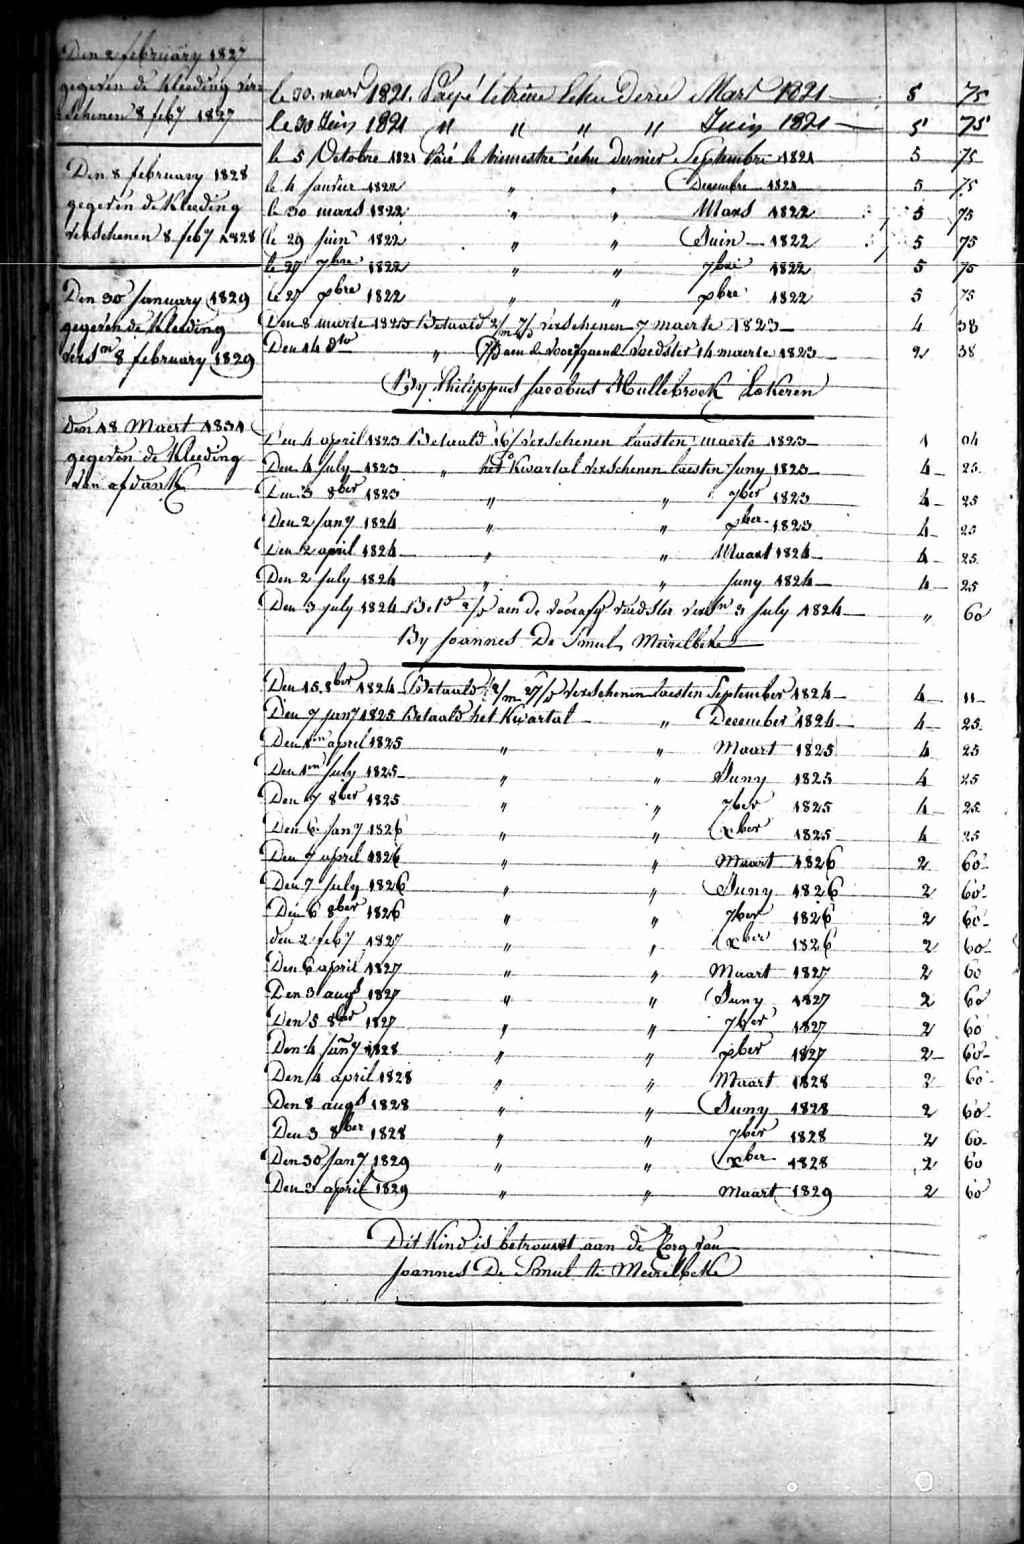 Den 2 february 1827
gegeven de Kleeding ver-
schenen 8 feby 1827
Den 8 february 1828
gegeven de Kleeding
verschenen 8 feby 1828
Den 30 January 1829
gegeven de Kleeding
vers.en 8 february 1829
Den 18 Maert 1831
gegeven de Kleeding
van afdank
le 30 mars 1821. Payé le trime échu dere Mars 1821 5 75
le 30 Juin 1821 " " " " Juin 1821 5 75
le 5 Octobre 1821 Païé le trimestre échu dernier Septembre 1821 5 75
le 4 janvier 1822 " " Decembre 1821 5 75
le 30 mars 1822 " " Mars 1822 5 75
le 29 juin 1822 " " Juin 1822 5 75
le 27 7bre 1822 " " 7bre 1822 5 75
le 27 xbre 1822 " " xbre 1822 5 75
Den 8 maerte 1823 Betaald 2/m 7/d verschenen 7 maerte 1823 4 38
Den 14 dto " 7/d aen de voorgaende voedster 14 maerte 1823 2 38
By Philippus Jacobus Hullebroek Lokeren
Den 4 april 1823 Betaald 16/ verschenen laesten maerte 1823 1 04
Den 4 July 1823 " het Kwartal verschenen laesten Juny 1823 4 25
Den 3 8ber 1823 " " 7ber 1823 4 25
Den 2 Jany 1824 " " xber 1823 4 25
Den 2 april 1824 " " Maart 1824 4 25
Den 2 July 1824 " " Juny 1824 4 25
Den 3 july 1824 Betd aen de voorafg voedster versn 3 July 1824 " 60
By Joannes De Smul Meirelbeke
Den 15 8ber 1824 Betaald 2/m 27/d verschenen laesten September 1824 4 11
Den 7 jany 1825 Betaald het Kwartal " December 1824 4 25
Den 1en april 1825 " " Maart 1825 4 25
Den 1en July 1825 " " Juny 1825 4 25
Den 7 8ber 1825 " " 7ber 1825 4 25
Den 6 Jany 1826 " " xber 1825 4 25
Den 7 april 1826 " " Maart 1826 2 60
Den 7 July 1826 " " Juny 1826 2 60
Den 6 8ber 1826 " " 7ber 1826 2 60
den 2 feby 1827 " " xber 1826 2 60
Den 6 april 1827 " " Maart 1827 2 60
Den 3 augt 1827 " " Juny 1827 2 60
Den 5 8ber 1827 " " 7ber 1827 2 60
Den 4 Jany 1828 " " xber 1827 2 60
Den 4 april 1828 " " Maart 1828 2 60
Den 8 augt 1828 " " Juny 1828 2 60
Den 3 8ber 1828 " " 7ber 1828 2 60
Den 30 Jany 1829 " " xber 1828 2 60
Den 3 april 1829 " " Maart 1829 2 60
Dit Kind is betrouwt aan de Zorg van
Joannes De Smul te Meirelbeke